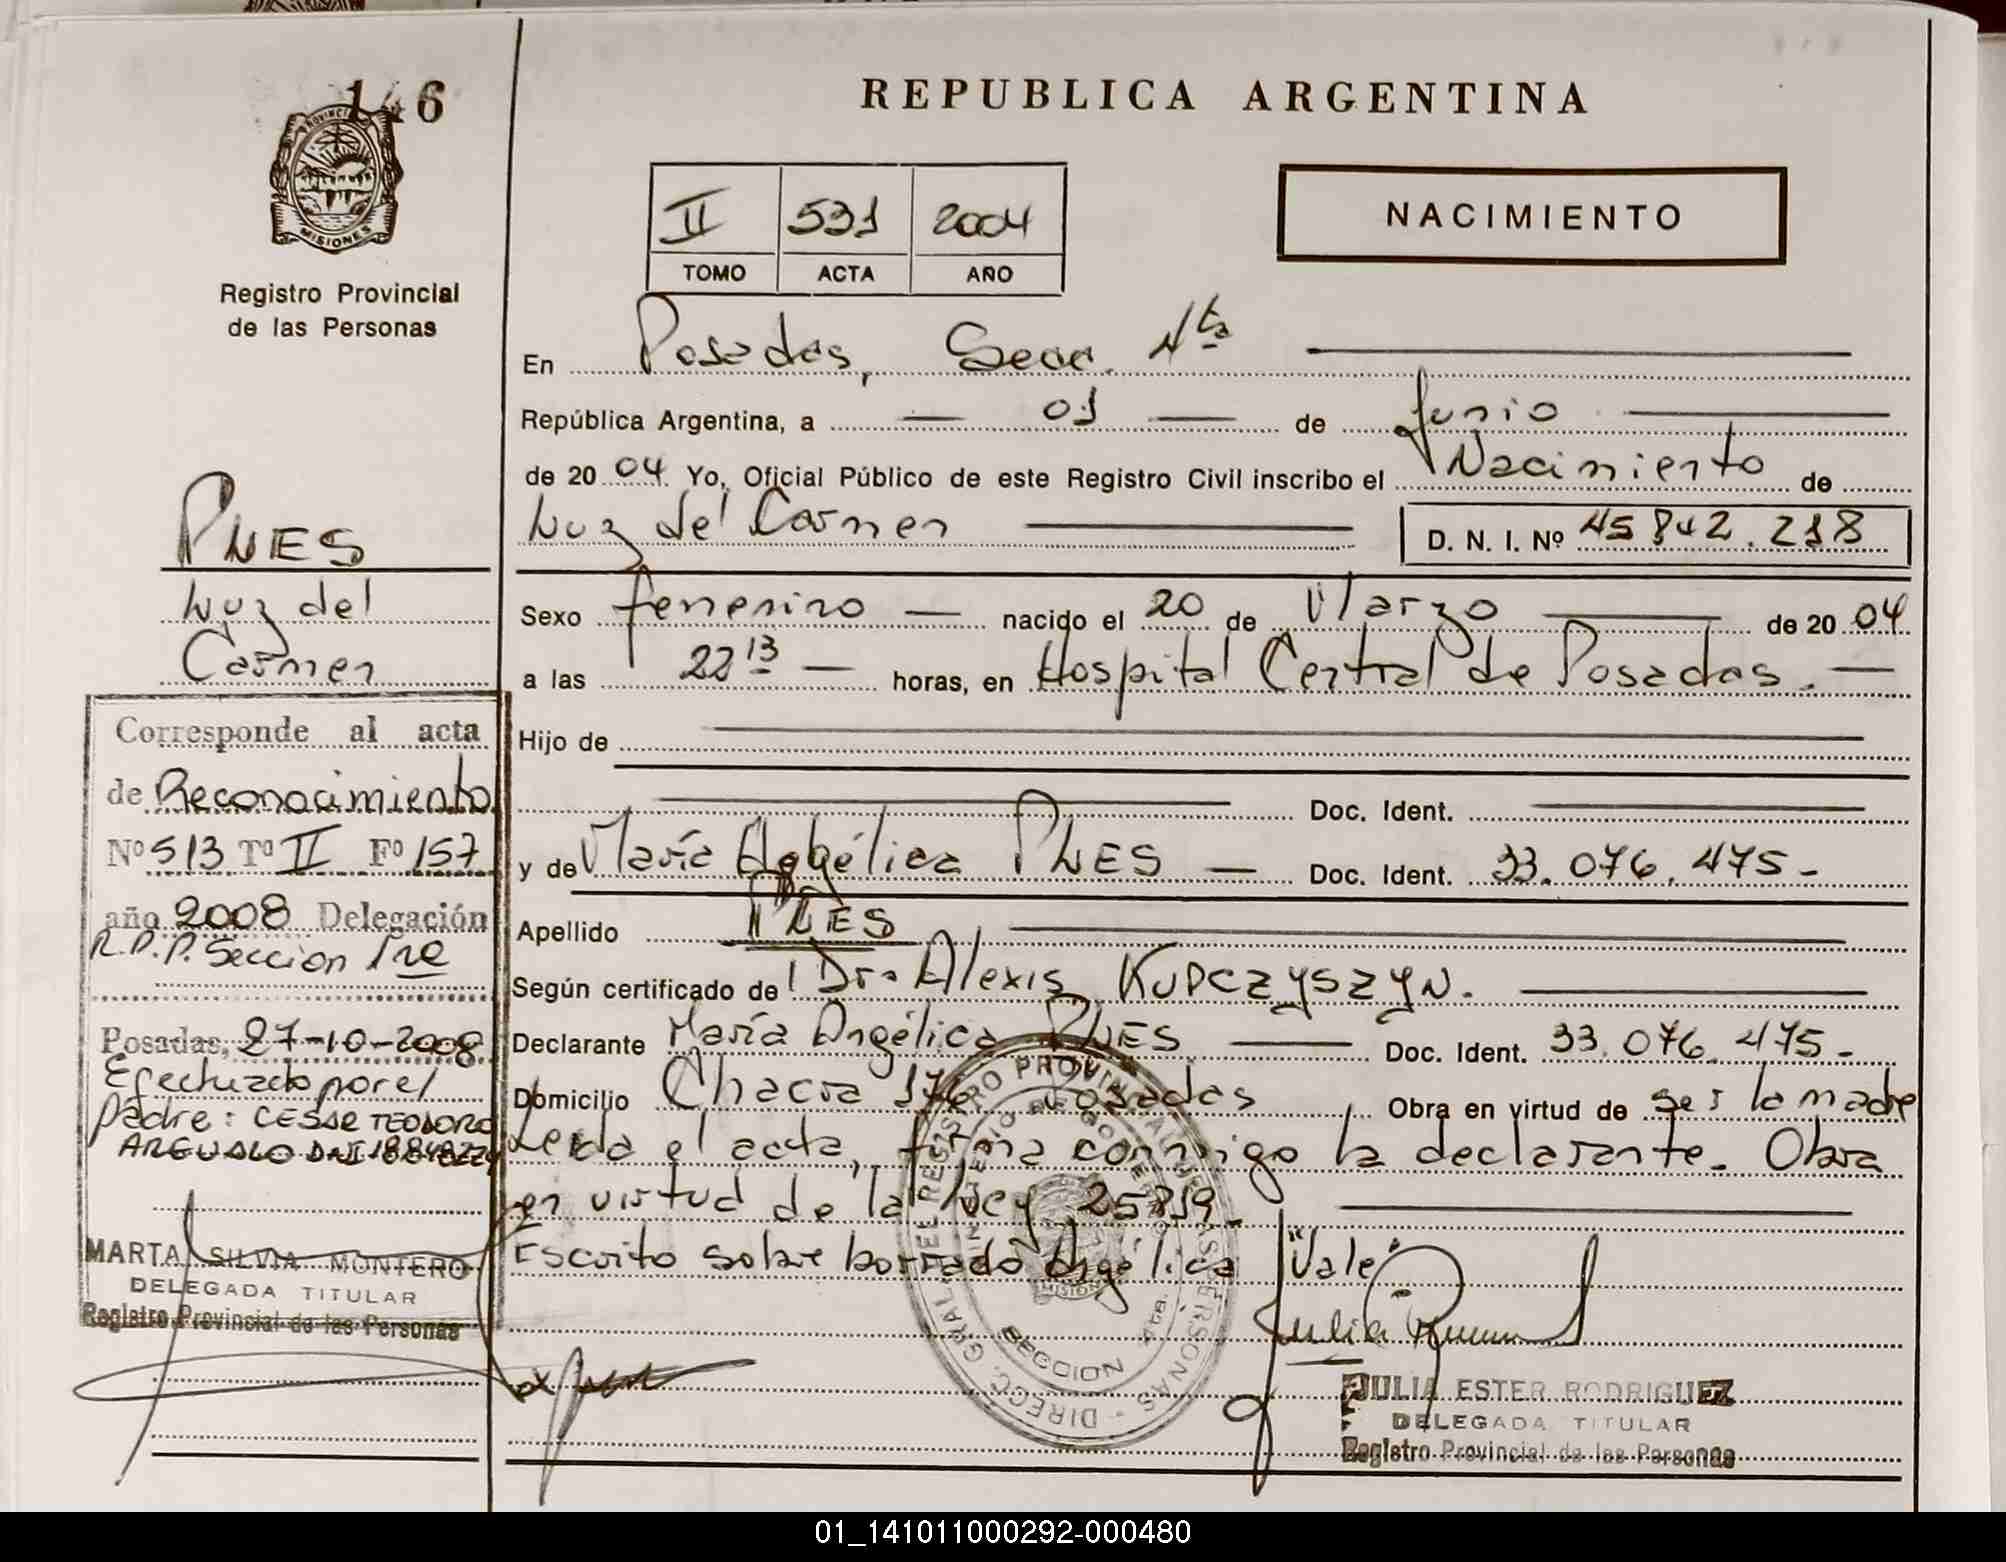 146
PROVINCIA
MISIONES
Registro Provincial
de las Personas
REPUBLICA ARGENTINA
II 531 2004
TOMO ACTA AÑO
NACIMIENTO
En Posadas, Secc. 4ta
República Argentina, a 01 de Junio
de 2004 Yo, Oficial Público de este Registro Civil inscribo el Nacimiento de
Luz del Carmen D. N. I. Nº 45 842.218
Sexo femenino nacido el 20 de Marzo de 2004
a las 22 13 horas, en Hospital Central de Posadas.
Hijo de
Doc. Ident.
y de María Angélica PNES Doc. Ident. 33.076.475-
Apellido PNES
Según certificado de Dr. Alexis KUPCZYSZYN.
Declarante María Angélica PNES Doc. Ident. 33.076.475-
Domicilio Chacra 176 Posadas Obra en virtud de ser la madre
Leida el acta, firma conmigo la declarante. Obra
en virtud de la Ley 25819.
Escrito sobre borrado Angélica "Vale"
PNES
Luz del
Carmen
Corresponde al acta
de Reconocimiento
Nº 513 Tº II Fº 157
año 2008 Delegación
R.P.P. Seccion 1ra
Posadas, 27-10-2008
Efectuado por el
padre: CESAR TEODORO
MARTA SILVIA MONTERO
DELEGADA TITULAR
Registro Provincial de las Personas
SECCION 4ta.
JULIA ESTER RODRIGUEZ
DELEGADA TITULAR
Registro Provincial de las Personas
01_141011000292-000480